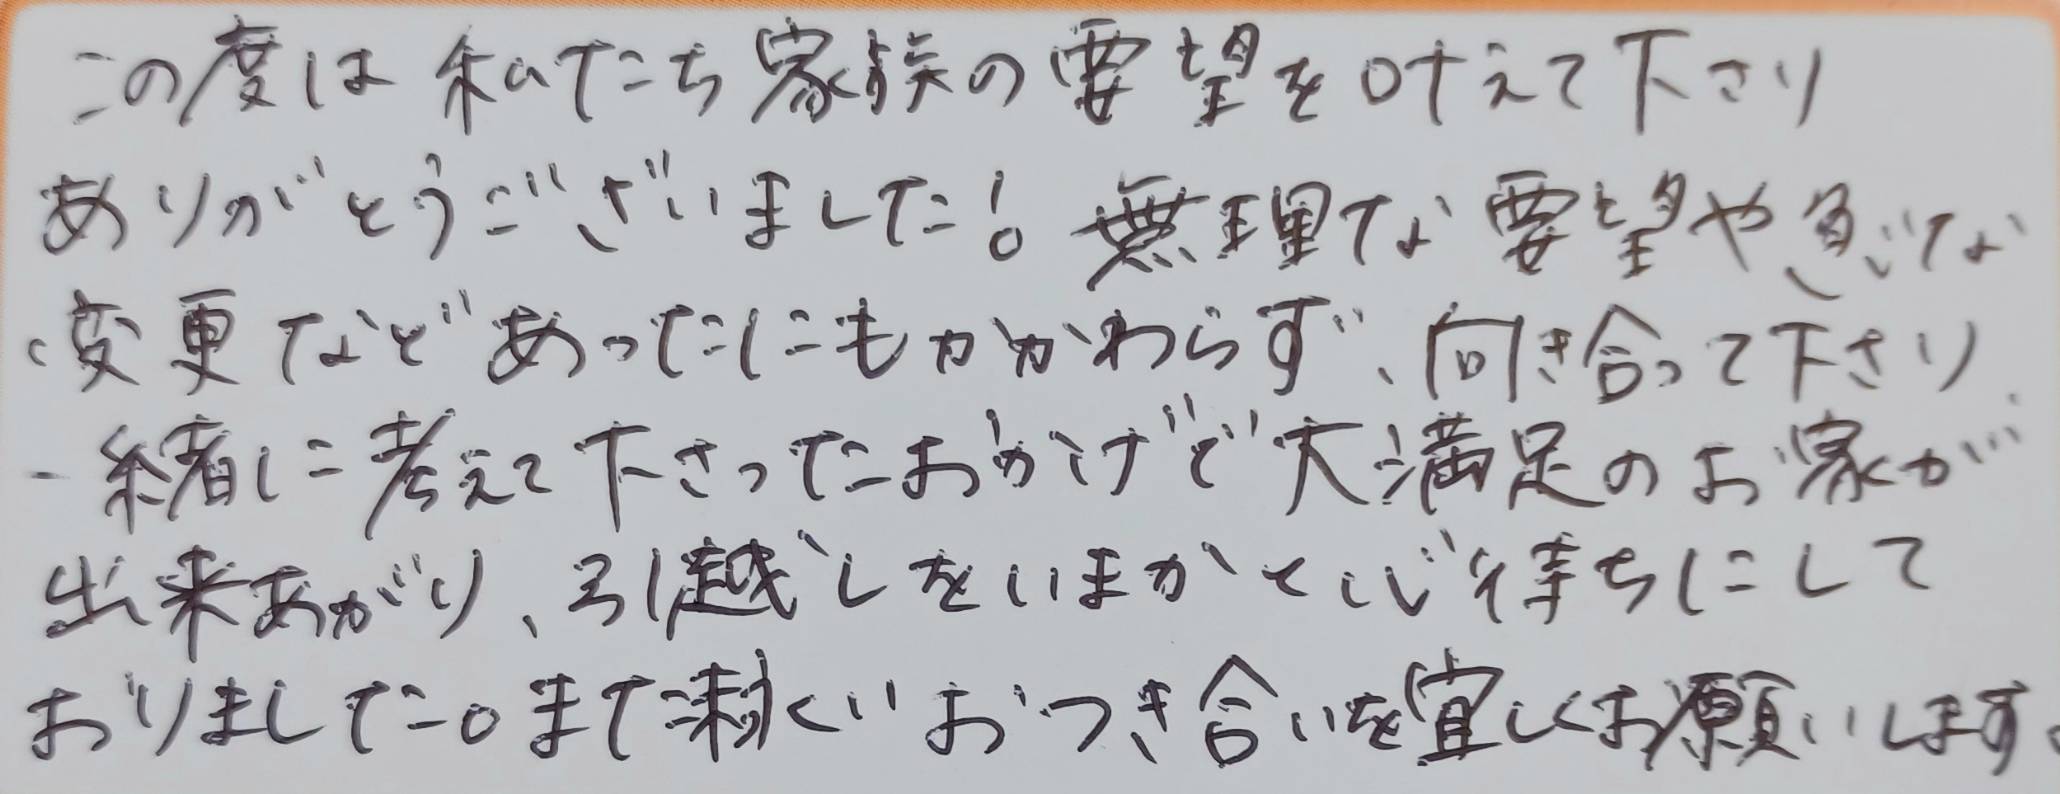 この度は私たち家族の要望を叶えて下さり
ありがとうございました!無理な要望や急な
変更などあったにもかかわらず、向き合って下さり、
一緒に考えて下さったおかげで大満足のお家が
出来あがり、引越しをいまかと心待ちにして
おりました。また末永いおつき合いを宜しくお願いします。